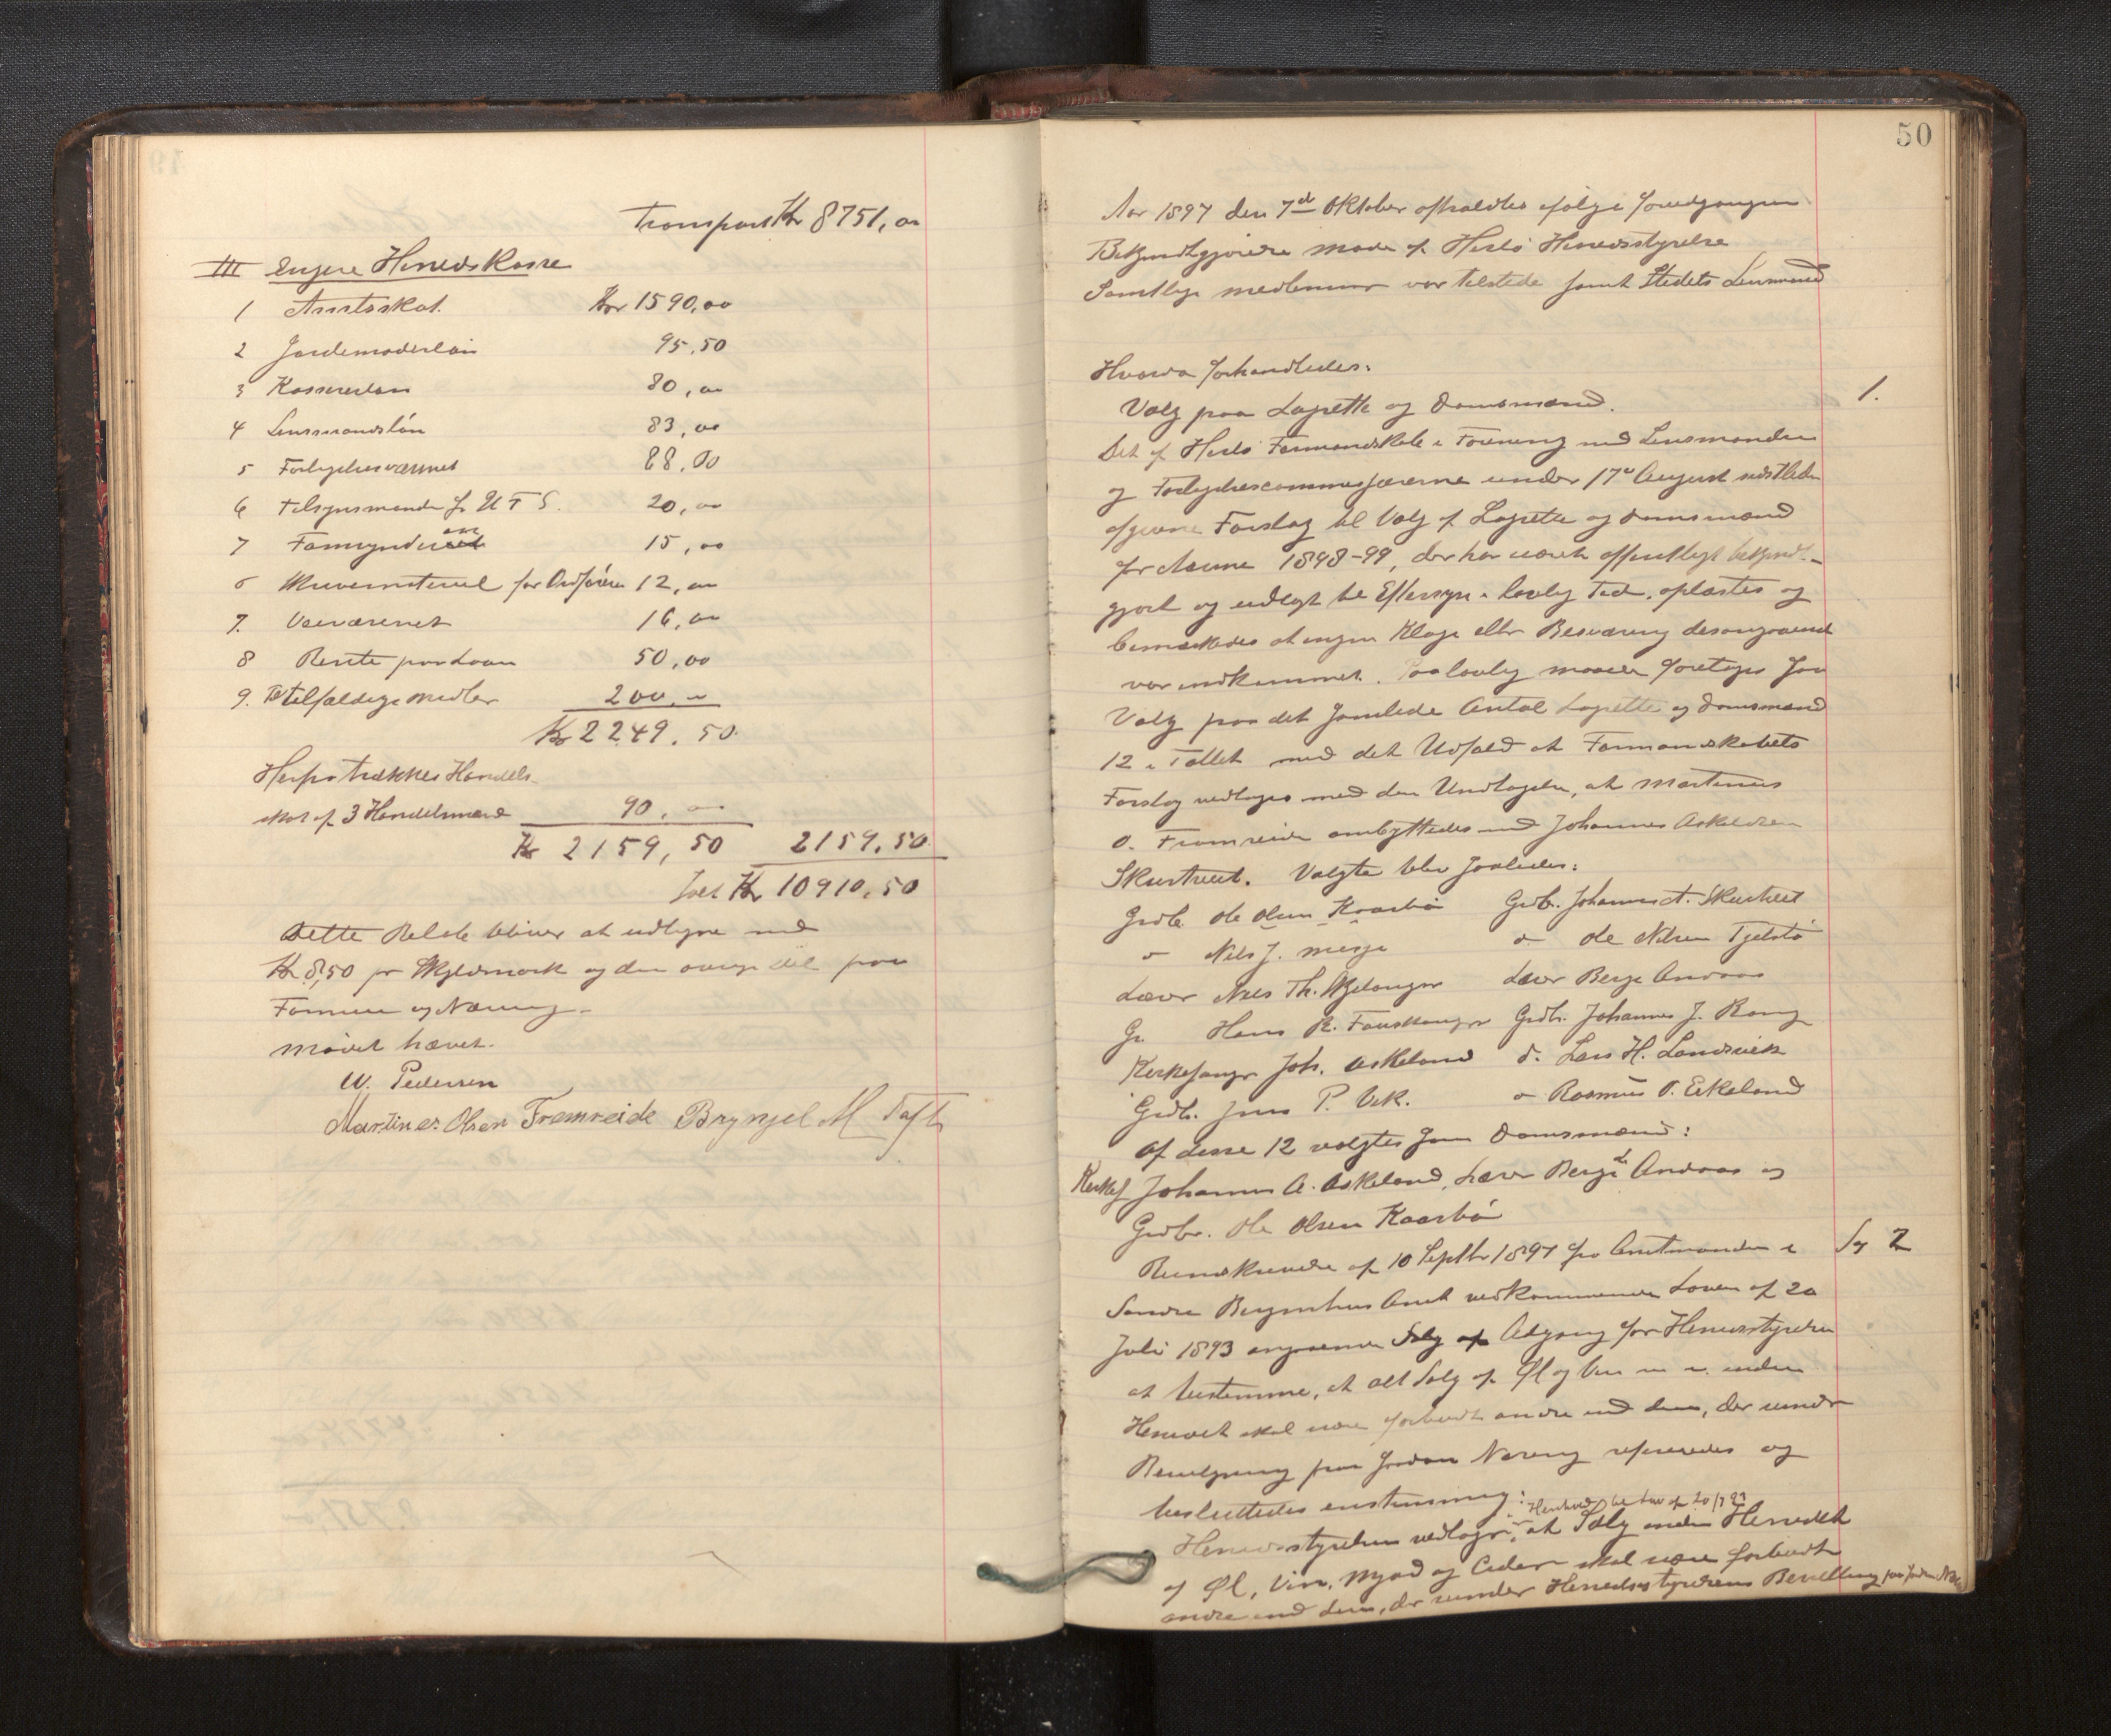 Transport Kr 8751,00
III Engere Herredskasse
1 Amtsskat. Kr 1590,00
2 Jordemoderløn 95,50
3 Kassererløn 80,00
4 Lensmandsløn 83,00
5 Forligelsesvæsenet 88,00
6 Tilsynsmænde f. U T S. 20,00
7 Formynderiet 15,00
6 Skrivemateriel for Ordføreren 12,00
7. Veivæsenet 16,00
8 Rente paa Laan 50,00
9. Til tilfældige Midler 200,00
Kr 2249,50
Herfra trækkes Handels-
skat af 3 Handelsmænd 90,00
Kr 2159,50 2159,50
Ialt Kr 10910,50
Dette Beløb bliver at udligne med
Kr 8,50 pr Skyldmark og den øvrige Del paa
Formue og Næring.
Mødet hævet.
W. Pedersen
Martines Olsen Fremreide Brynjel M Toft
50
Aar 1897 den 7de Oktober afholdtes ifølge foregangen
Bekjendtgjørelse Møde af Herlø Herredsstyrelse
Samtlige Medlemmer var tilstede samt Stedets Lensmand
Hvorda forhandledes:
1.
Valg paa Lagrette og Domsmænd.
Det af Herlø Formandskab i Forening med Lensmanden
og Forligelsescommissærerne under 17de August sidstleden
afgivne Forslag til Valg af Lagrette og Domsmænd
for Aarene 1898-99, der har været offentligt bekjendt-
gjort og udlagt til Eftersyn i lovlig Tid, oplæstes og
bemærkedes at ingen Klage eller Besværing desangaaende
var indkommet. Paa lovlig Maade foretoges saa
Valg paa det samlede Antal Lagrette og Domsmænd
12 i Tallet med det Udfald at Formandskabets
Forslag vedtoges med den Undtagelse, at Martinus
O. Fromreide ombyttedes med Johannes Askeldsen
Skurtveit. Valgte blev saaledes:
Grdb. Ole Olsen Kaarbø Grdb. Johannes A. Skurtveit
" Nils J. Merje " Ole Nilsen Tjelstø
Lærer Nils Th. Skjelanger Lærer Berge Andaas
Gr. Hans R. Fauskanger Grdb. Johannes J. Rong
Kirkesanger Joh. Askeland d. Lars H. Landsvik
Grdb. Jens P. Vik. " Rasmus O. Eikeland
Af disse 12 valgtes som Domsmænd:
Kirkes Johannes A. Askeland, Lærer Berge L Andaas og
Grdbr. Ole Olsen Kaarbø
Sag 2
Rundskrivelse af 10 Septbr 1897 fra Amtmanden i
Søndre Bergenhus Amt vedkommende Loven af 20
Juli 1893 angaaende Salg af Adgang for Herredsstyrelsen
at bestemme, at alt Salg af Øl og Vin m v. inden
Herredet skal være forbudt andre end dem, der under
Bevilgning paa saadan Næring refereredes og
besluttedes enstemmig:
Henhold til Lov af 20/7 93
Herredsstyrelsen vedtager, at Salg inden Herredet
af Øl, Vin, Mjød og Cider skal være forbudt
andre end dem, der under Herredsstyrelsens Bevilling paa saadan